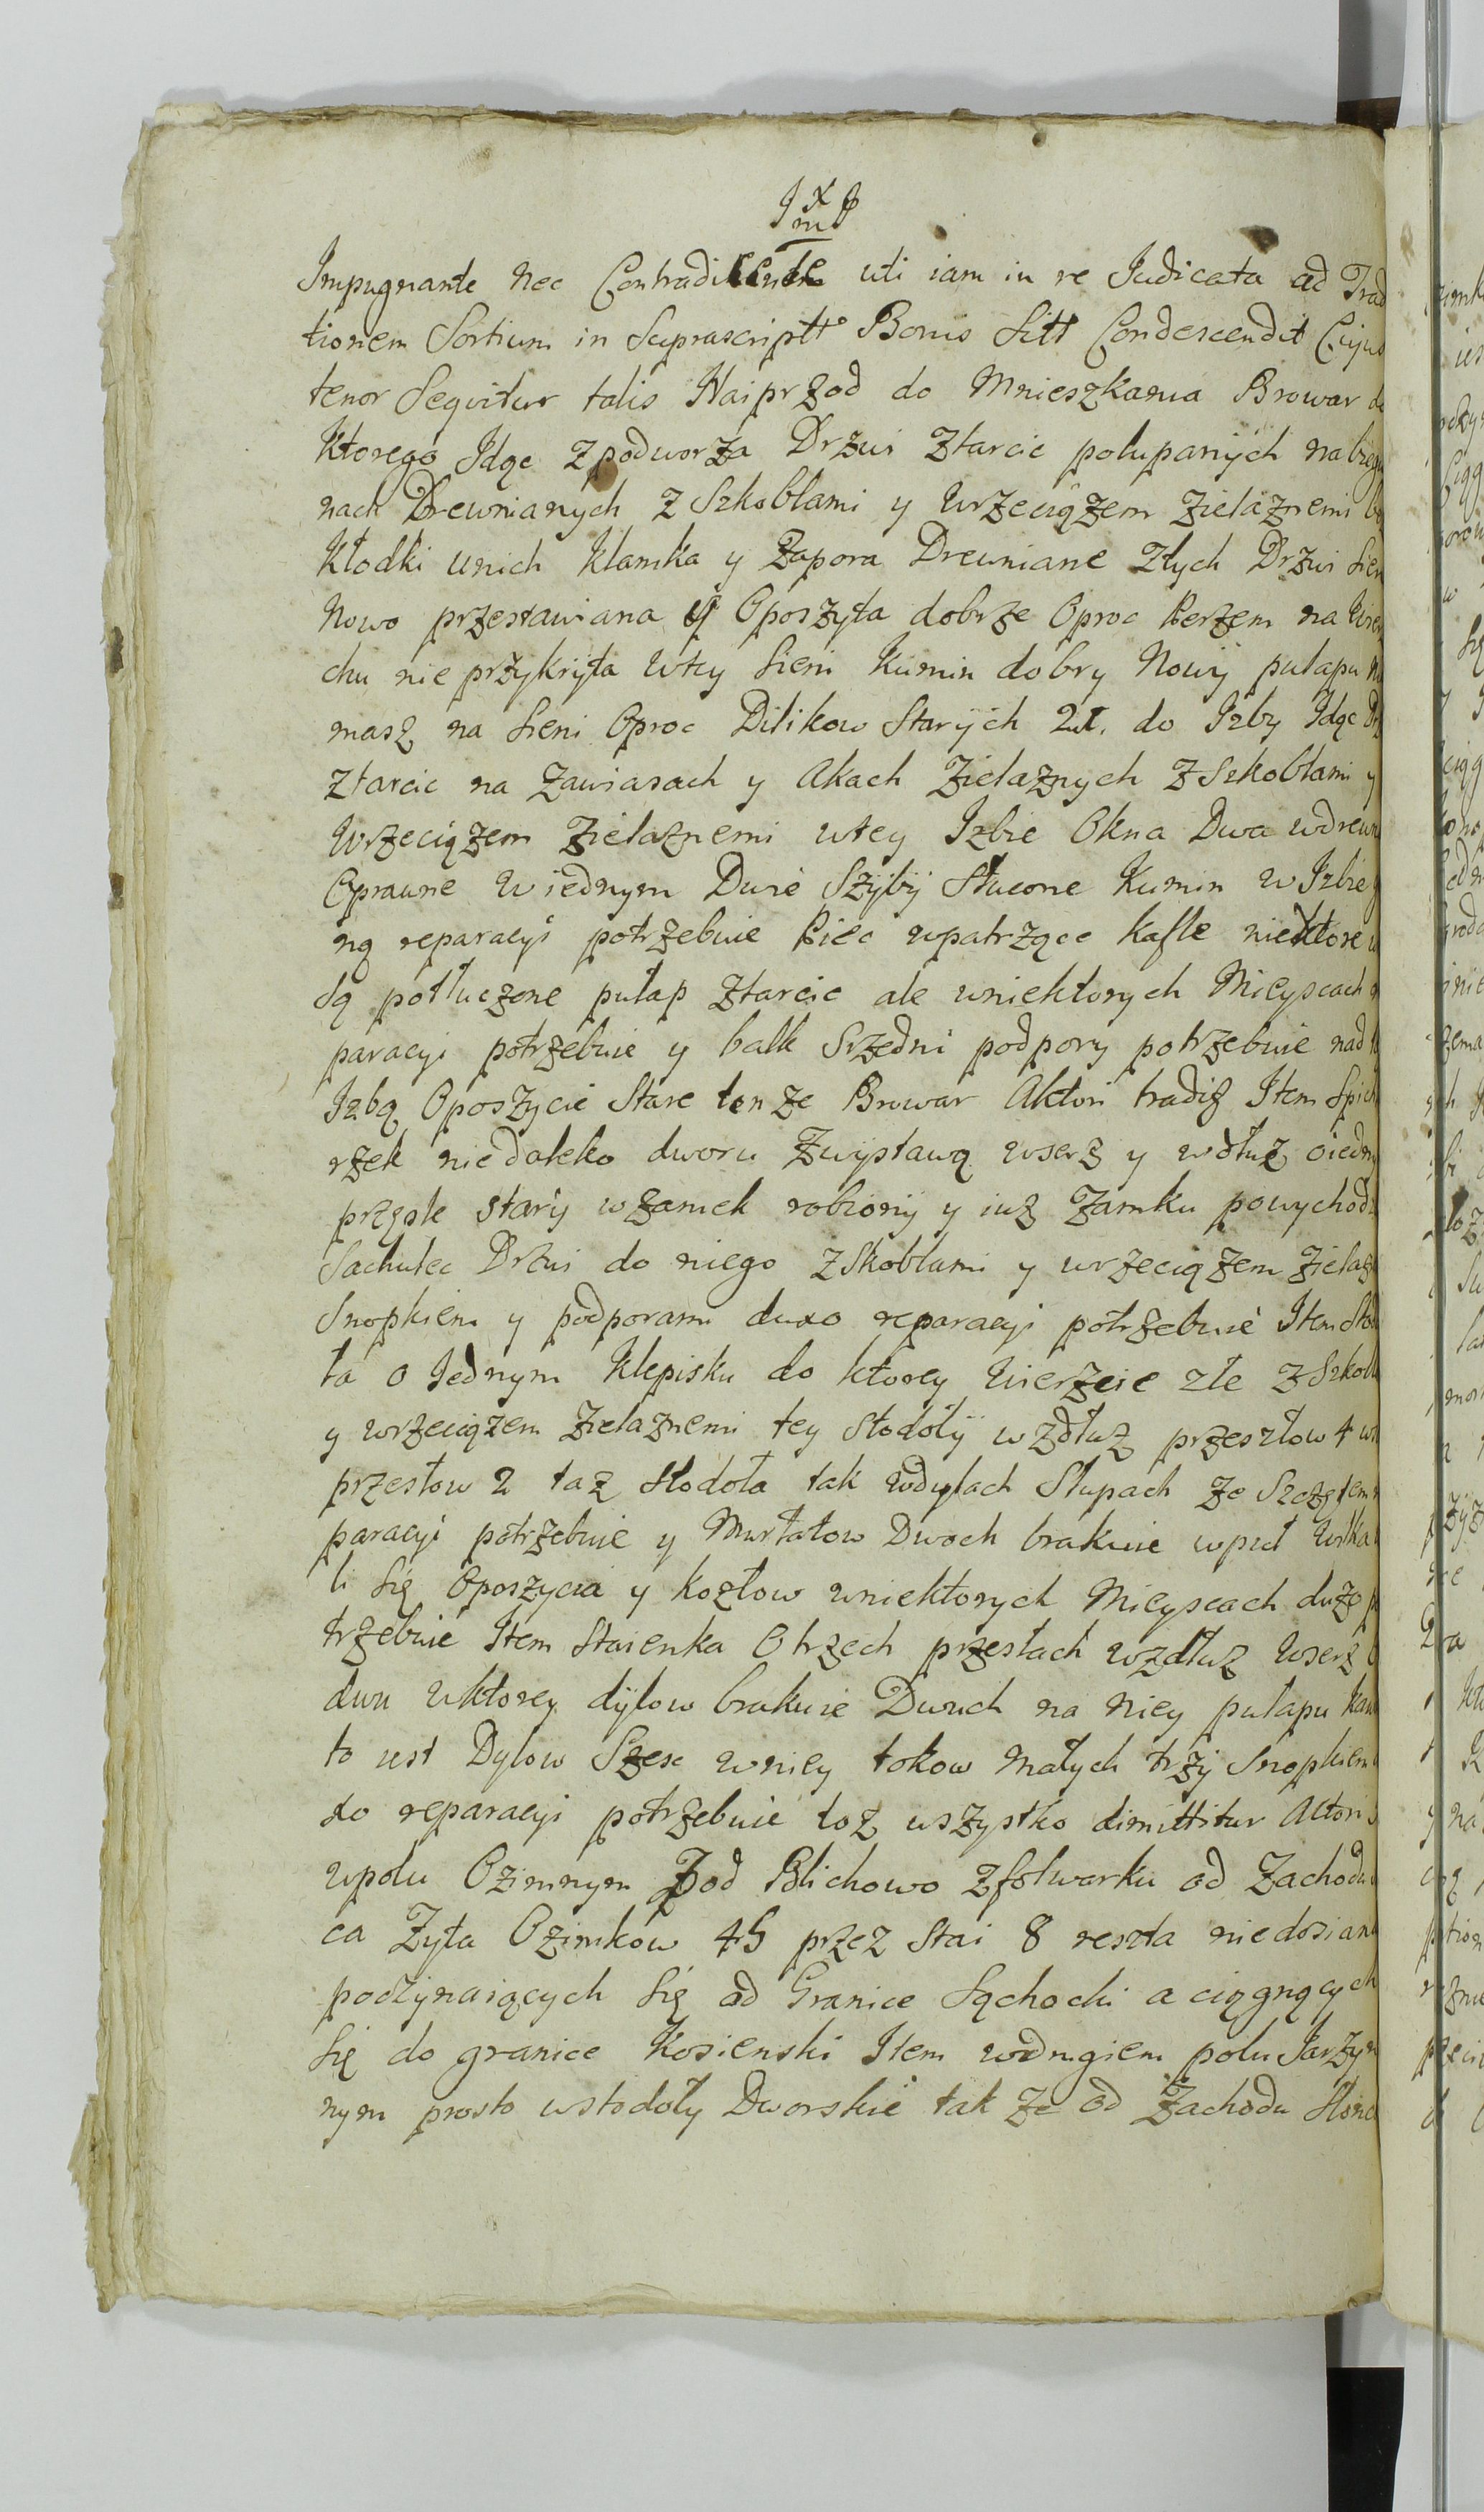 Impugnante Nec Contradicente uti iam in re Judicata ad Trad
tionem Sortium in Suprascriptt Bonis Sitt Condescendit Cujus
tenor Sequitur talis Naiprzod do Mnieszkania Browar do
Ktorego Idąc z podworza Drzwi ztarcic połupanych na bieg
nach Drewnianych z Szkoblami y Wrzeciązem Zielaznemi be
Kłodki unich Klamka y Zapora Drewniane Złych Drzwi Sien
Nowo przestawiana y Oposzyta dobrze Oproc Perzem na Wierz
chu nie przykryta wtey Sieni Kumin dobry Nowy pułapu Ni
masz na Sieni Oproc Dilikow Starych 21. do Izby Idąc Drz
ztarcic na Zawiasach y Akach Zielaznych z Szkoblami y
Wrzeciązem Zielaznemi wtey Izbie Okna Dwa wdrewn
Oprawne W iednym Dwie Szyby Stucone Kumin w Izbie
ną reparacyi potrzebuie Piec wpatrzące kafle niektore w
Są potłuczone pułap ztarcic ale wniektorych Mieyscach re
paracyi potrzebuie y balk Srzedni podpory potrzebuie nad tą
Izbą Oposzycie Stare ten ze Browar Aktori tradit Item Spich
rzek niedaleko dworu Zwystawą wserz y wdłuz oiedny
przęsle stary wzamek robiony y iuz Zamku powychodz
Sachulec Drzwi do niego z Skoblami y wrzeciązem Zielazn
Snopkiem y podporami duzo reparacyi potrzebuie Item Stodo
ła o Jednym Klepisku do ktorey Wierzeie złe z Szkobla
y wrzeciązem Zielaznemi tey Stodoły wzdłuz przeszłow 4 ws
przesłow 2 taz Stodoła tak wdyłach Słupach ze Szczętem
paracyi potrzebuie y Murłatow Dwoch brakuie wpuł Wska
li Się Oposzycia y kozłow wniektorych Mieyscach duzo po
trzebuie Item Staienka O trzech przesłach wzdłuz Wserz
dwu wktorey dyłow brakuie Dwuch na niey pułapu Kaw
to iest Dylow Szesc wniey tokow małych trzy Snopkiem
do reparacyi potrzebuie toz wszystko dimittitur Actori
wpolu Ozimnym Pod Blichowo zfolwarku od Zachodu
ca Zyta Ozimkow 45 przez Stai 8 reszta niedosian
poczynaiących Się od Granice Sąchocki a ciągnących
Się do granice Kosienski Item wdrugiem polu Jarzyn
nym prosto wstodoły Dworskie tak ze od Zachodu Słonca